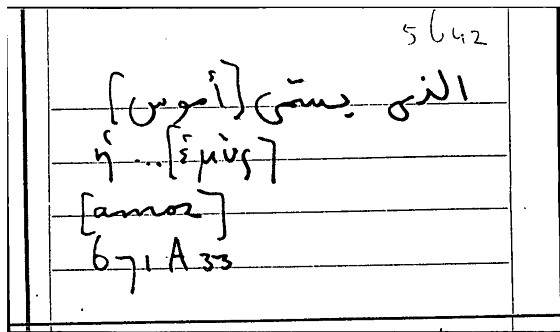 5642
الذى يسمّى [أموس]
ἡ ... [ἐμὺς]
[amoz]
671 A 33